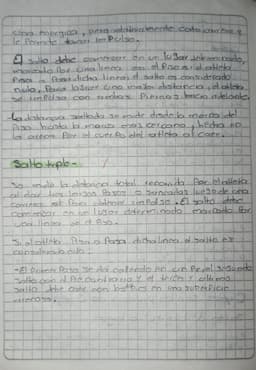 una energica, pero relativamente corta carrera y
le permite tomar impulso.
El salto debe comenzar en un lugar determinado,
marcado por una linea en el piso si el atleta
pisa o pasa dicha linea el salto es considerado
nulo, Para lograr una mayor distancia, el atleta
se impulsa con ambas piernas hacia adelante.
La distancia saltada se mide desde la marca del
piso hasta la marca mas cercana, hecha en
la arena por el cuerpo del atleta al caer.
Salto triple-
Se mide la distancia total recorrida por el atleta
al dar los largos pasos o zancadas luego de una
carrera que para obtener impulso. El salto debe
comenzar en un lugar determinado marcado por
una linea en el piso.
Si el atleta Pisa o Pasa dicha linea el salto es
considerado nulo.
-El primer Paso se da cayendo en un pie, el segundo
salto con el pie contrario y el tercer y ultimo
salto debe caer con ambos en una superficie
arenosa.